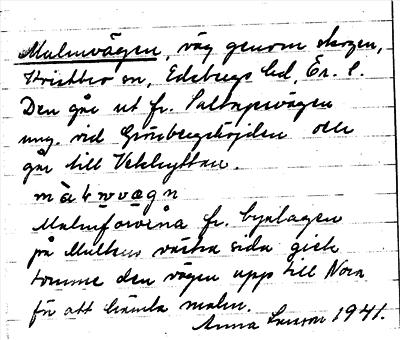 Malmvägen, väg genom skogen,
Kvistbro sn, Edsbergs hd Ör. l.
Den går ut fr. Saltapsvägen
ung. vid Grönbergshöjden och
går till Vekhyttan.
màlmvægn
Malmfororna fr. byalagen
på Multens västra sida gick
komme den vägen upp till Nora
för att hämta malm.
Anna Larsson 1941.